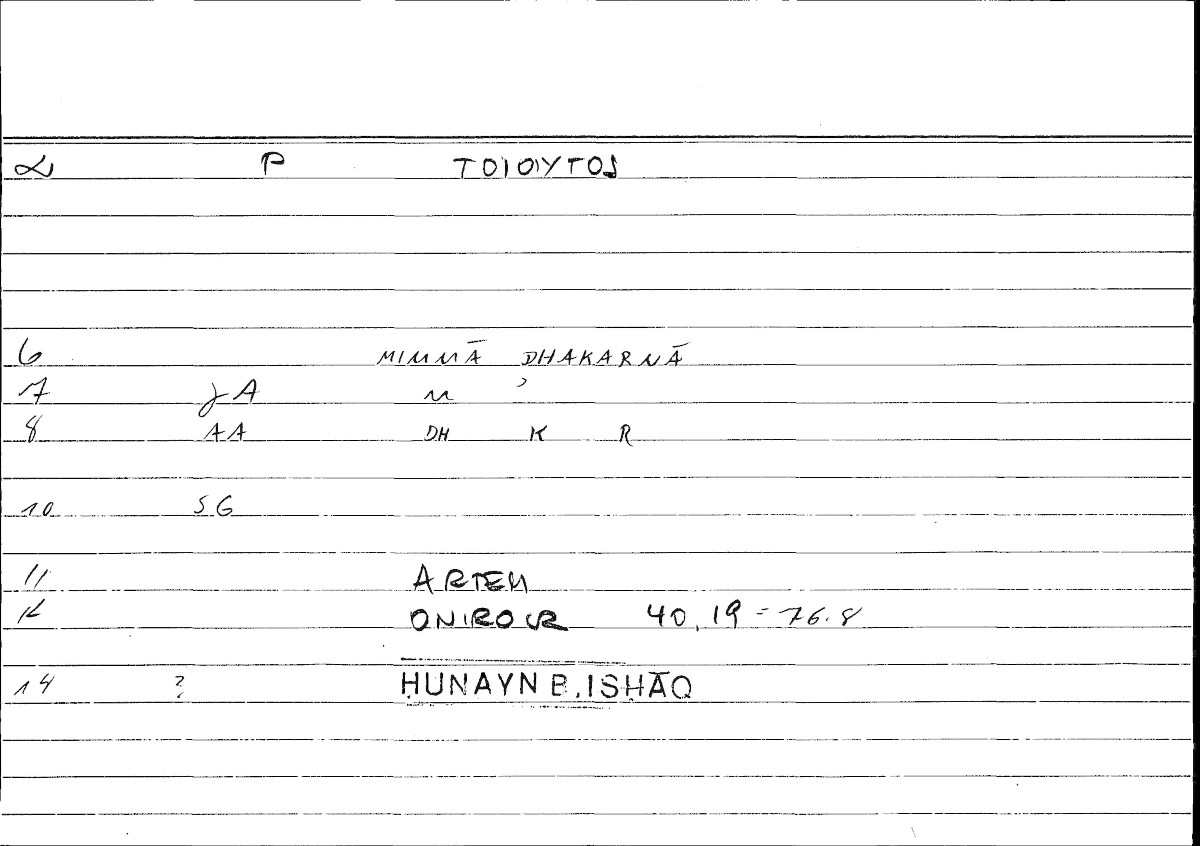 α P ΤΟΙΟΥΤΟΣ
6 MIMMĀ DHAKARNĀ
7 JA M ʾ
8 AA DH K R
10 SG
11 ARTEM
12 ONIROCR 40,19 = 76.8
14 ? ḤUNAYN B. ISḤĀQ